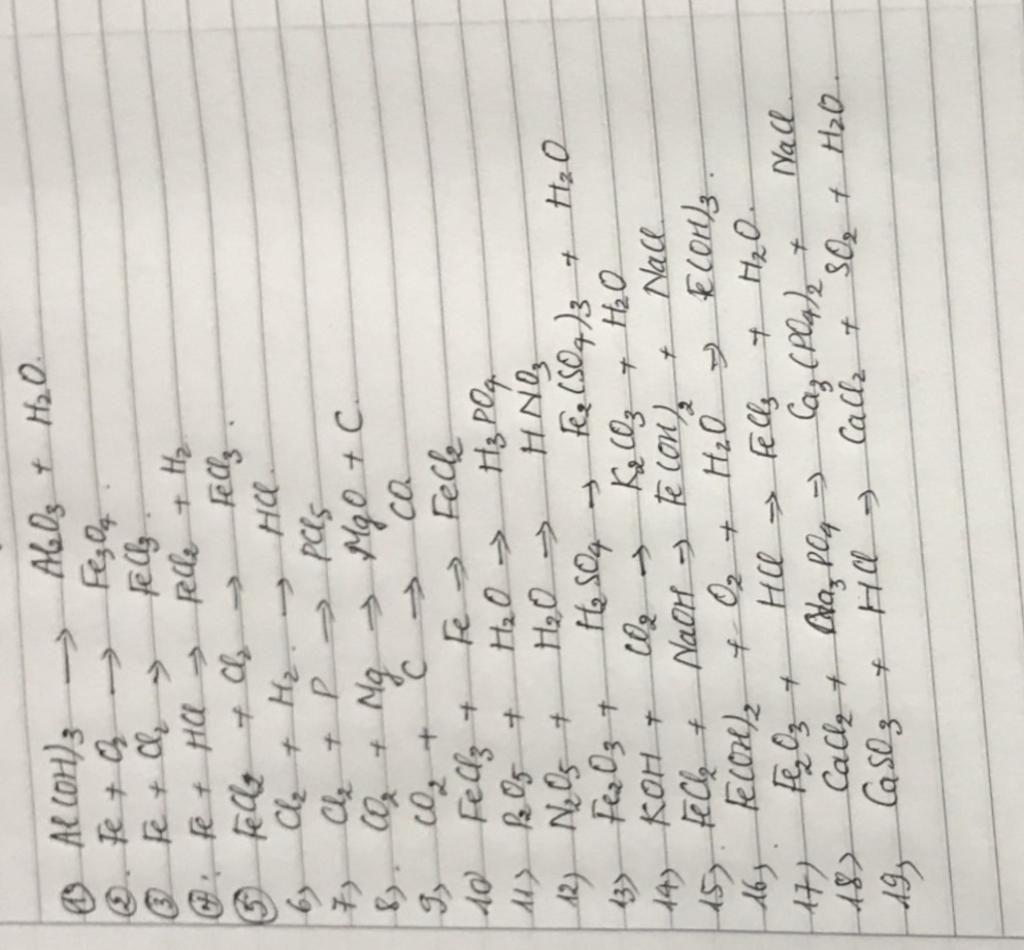 ① Al(OH)3 → Al2O3 + H2O.
②. Fe + O2 → Fe3O4.
③ Fe + Cl2 → FeCl3.
④. Fe + HCl → FeCl2 + H2
⑤ FeCl2 + Cl2 → FeCl3.
6) Cl2 + H2. → HCl.
7) Cl2 + P → PCl5
8). CO2 + Mg → MgO + C.
9) CO2 + C → CO.
10 FeCl3 + Fe → FeCl2
11) P2O5 + H2O → H3PO4
12) N2O5 + H2O → HNO3
13) Fe2O3 + H2SO4 → Fe2(SO4)3 + H2O
14) KOH + CO2 → K2CO3 + H2O
15). FeCl2 + NaOH → Fe(OH)2 + NaCl
16). Fe(OH)2 + O2 + H2O → Fe(OH)3.
17) Fe2O3 + HCl → FeCl3 + H2O.
18) CaCl2 + Na3PO4 → Ca3(PO4)2 + NaCl.
19) CaSO3 + HCl → CaCl2 + SO2 + H2O.